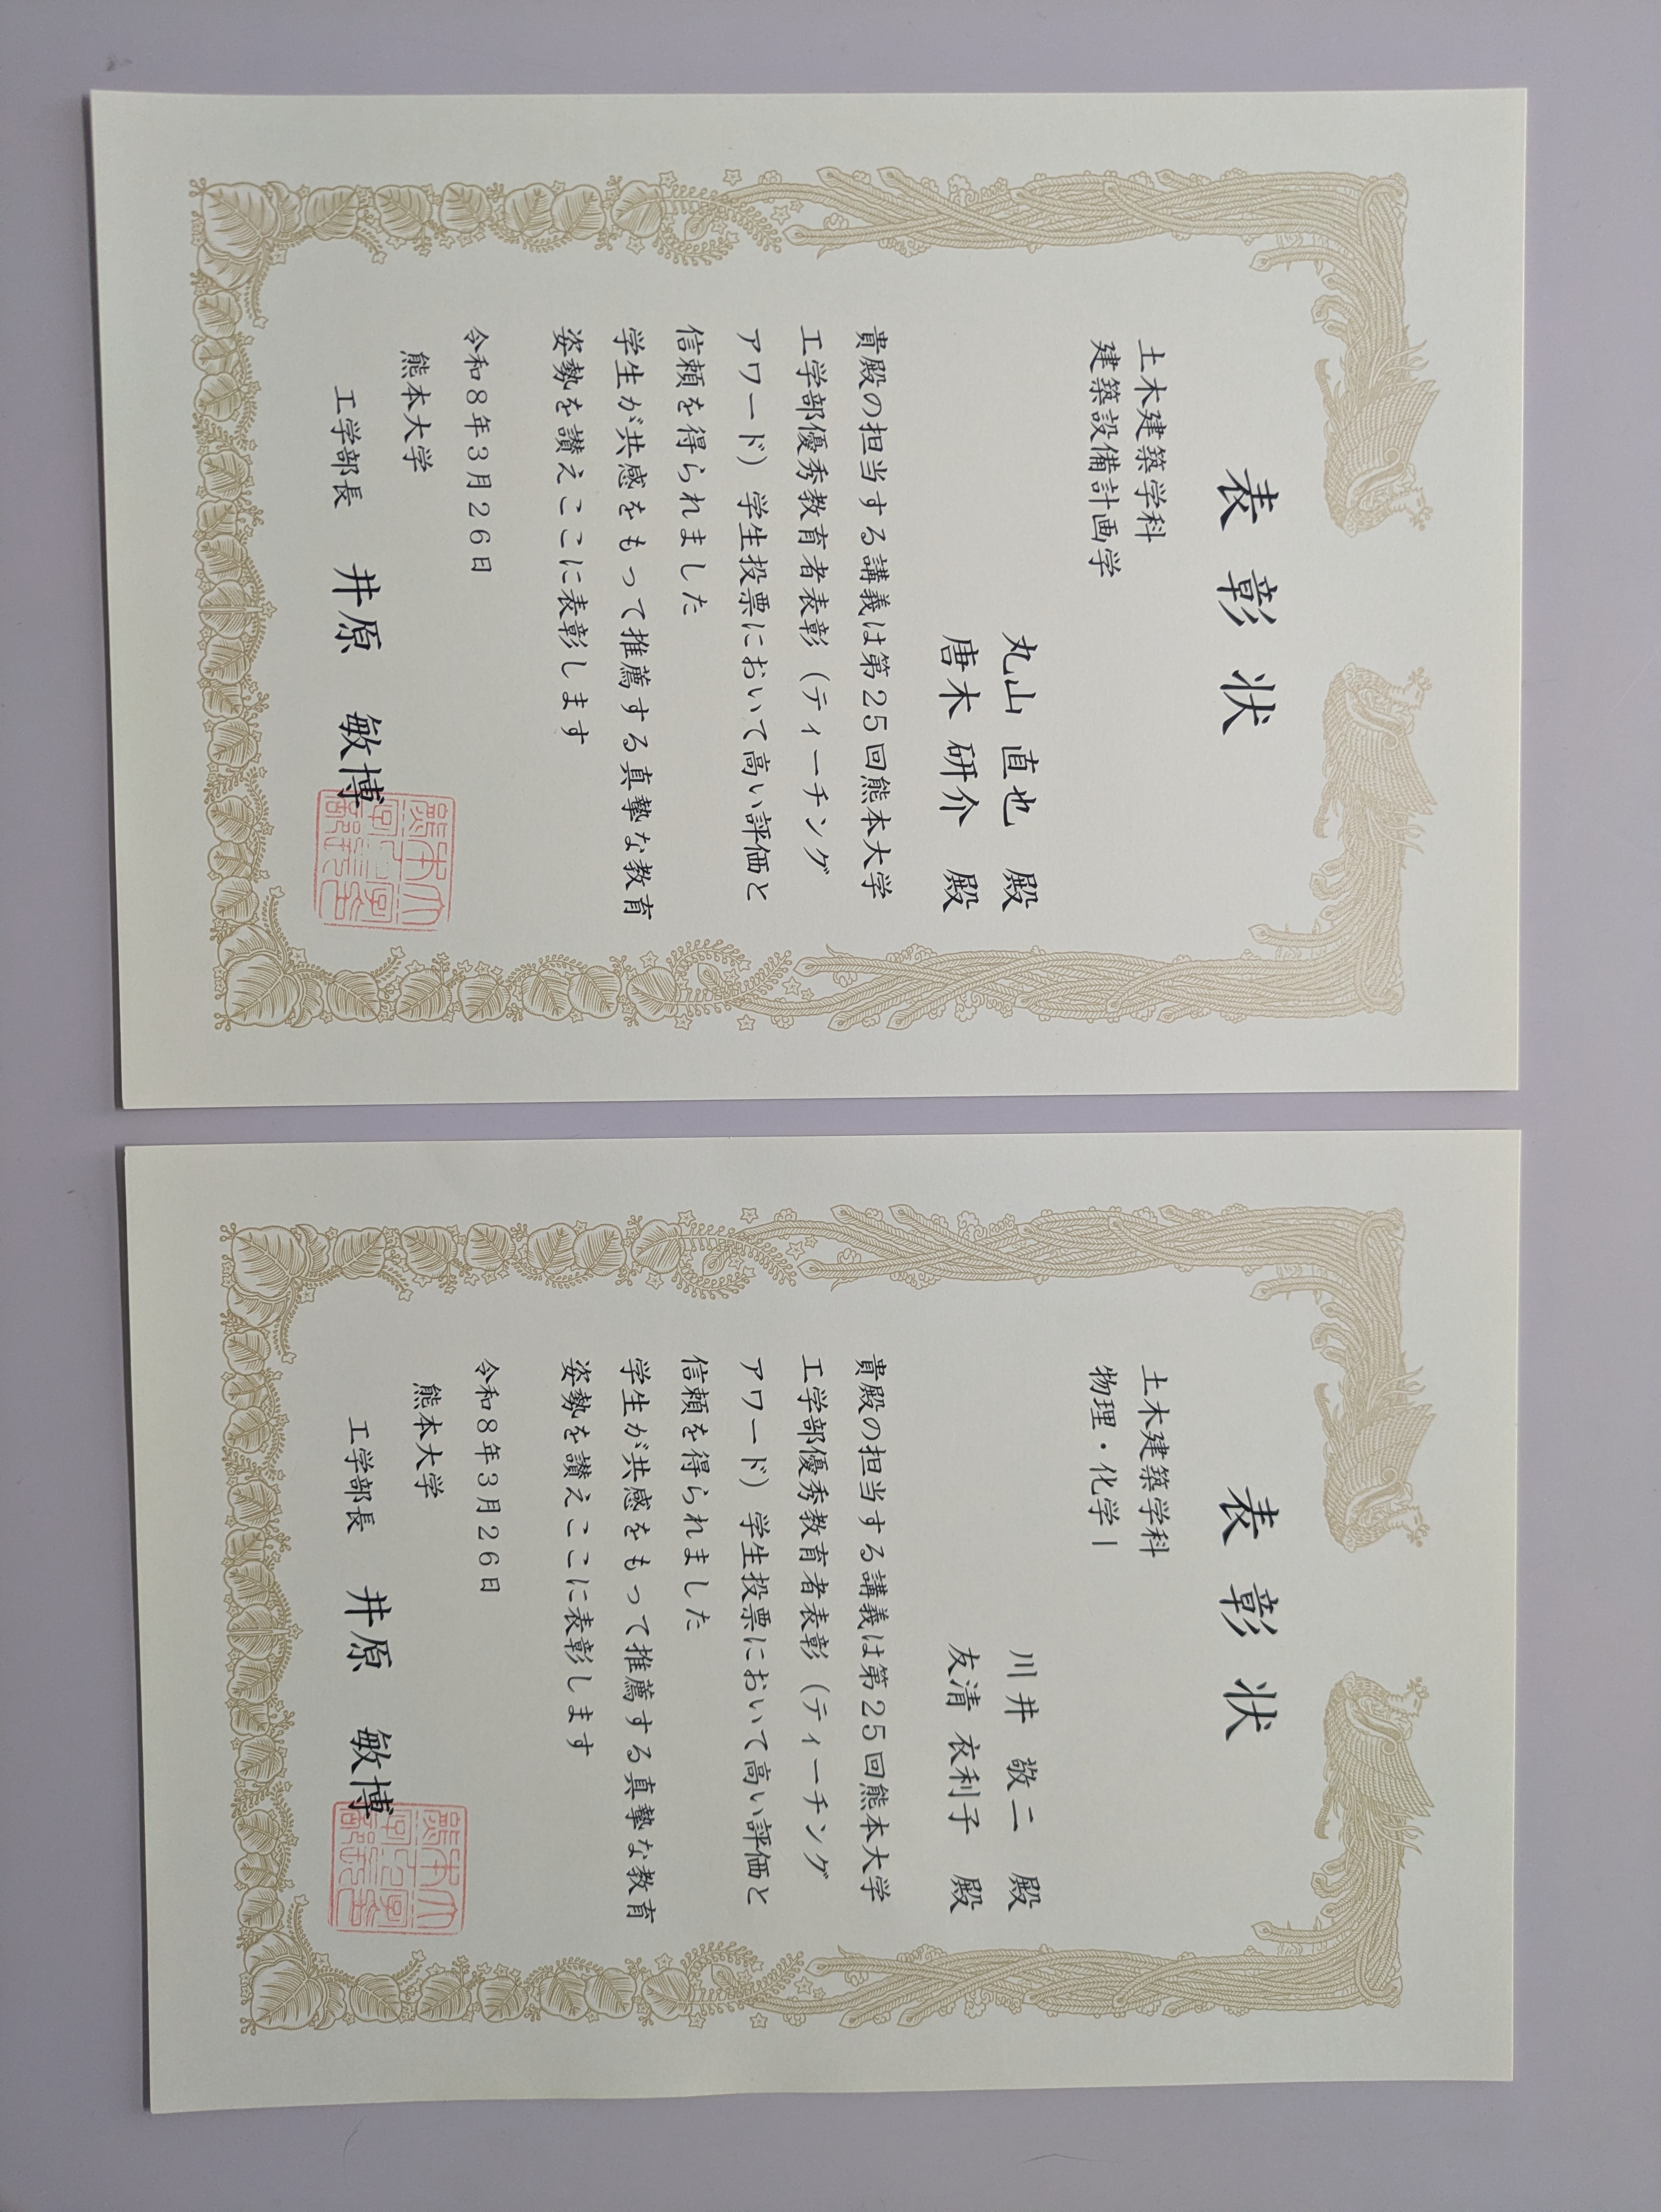 表彰状
土木建築学科
建築設備計画学
丸山 直也 殿
唐木 研介 殿
貴殿の担当する講義は第25回熊本大学
工学部優秀教育者表彰（ティーチング
アワード）学生投票において高い評価と
信頼を得られました
学生が共感をもって推薦する真摯な教育
姿勢を讃えここに表彰します
令和8年3月26日
熊本大学
工学部長 井原 敏博
表彰状
土木建築学科
物理・化学Ⅰ
川井 敬二 殿
友清 衣利子 殿
貴殿の担当する講義は第25回熊本大学
工学部優秀教育者表彰（ティーチング
アワード）学生投票において高い評価と
信頼を得られました
学生が共感をもって推薦する真摯な教育
姿勢を讃えここに表彰します
令和8年3月26日
熊本大学
工学部長 井原 敏博